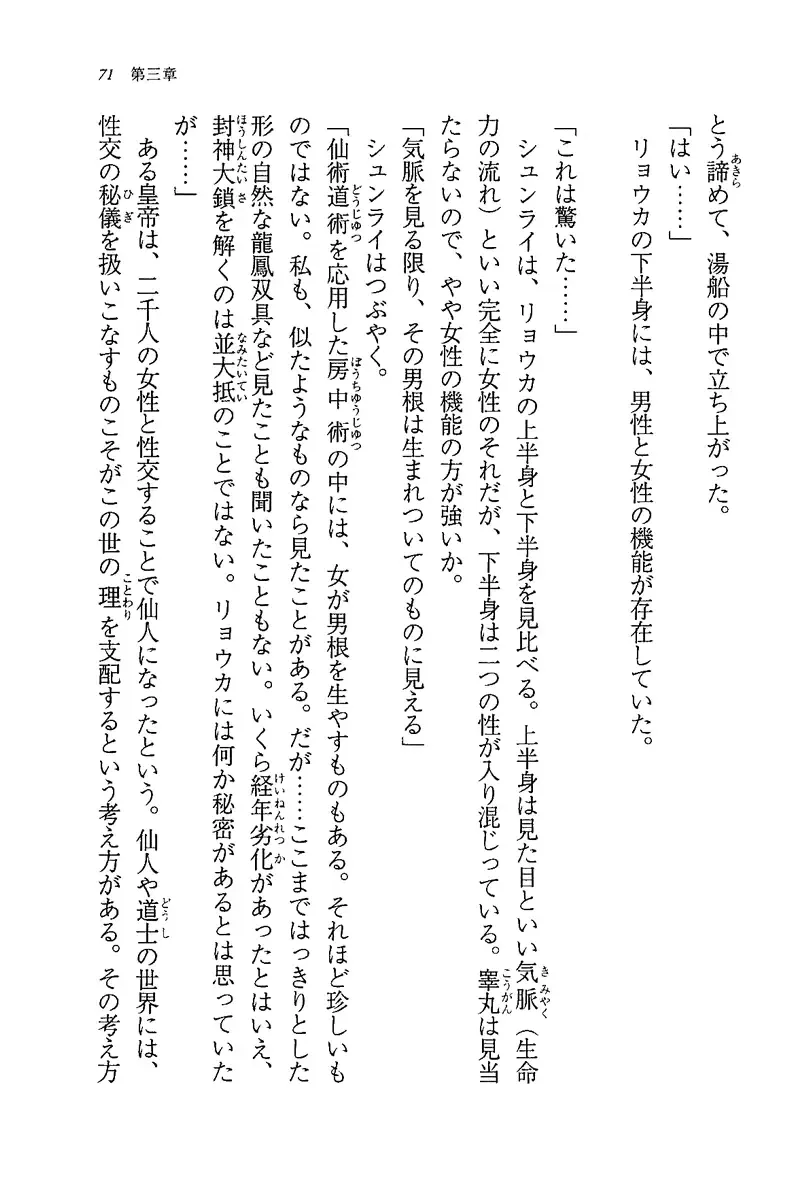 71 第三章
とう諦めて、湯船の中で立ち上がった。
「はい……」
リョウカの下半身には、男性と女性の機能が存在していた。
「これは驚いた……」
シュンライは、リョウカの上半身と下半身を見比べる。上半身は見た目といい気脈（生命
力の流れ）といい完全に女性のそれだが、下半身は二つの性が入り混じっている。睾丸は見当
たらないので、やや女性の機能の方が強いか。
「気脈を見る限り、その男根は生まれついてのものに見える」
シュンライはつぶやく。
「仙術道術を応用した房中術の中には、女が男根を生やすものもある。それほど珍しいも
のではない。私も、似たようなものなら見たことがある。だが……ここまではっきりとした
形の自然な龍鳳双具など見たことも聞いたこともない。いくら経年劣化があったとはいえ、
封神大鎖を解くのは並大抵のことではない。リョウカには何か秘密があるとは思っていた
が……」
ある皇帝は、二千人の女性と性交することで仙人になったという。仙人や道士の世界には、
性交の秘儀を扱いこなすものこそがこの世の理を支配するという考え方がある。その考え方